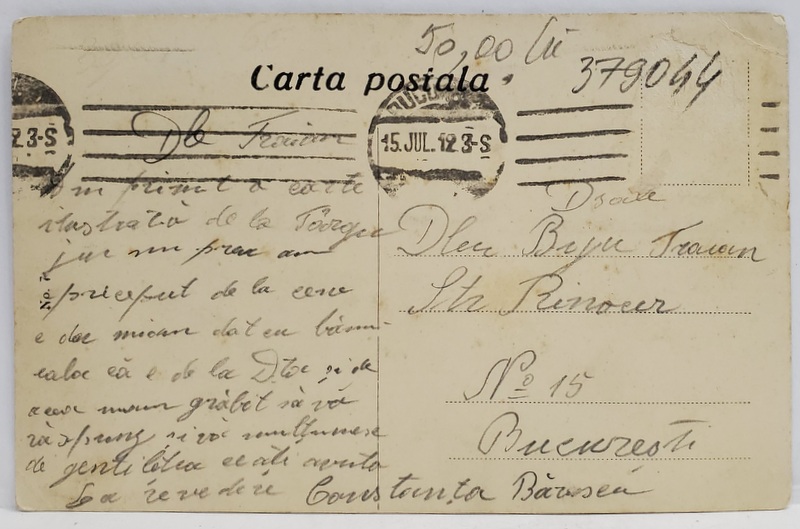 50,00 lei
379044
Carta postala
BUCU
2 3-S
15.JUL.12 3-S
Dle Traian
Am primit o carte
ilustrată de la Târgu
jiu nu prea am
priceput de la cene
e dar miam dat cu bănui
eala că e de la Dta și de
aceea mam grăbit să vă
răspung și vă mulțumesc
de gentilețea ce ați avuto
La revedere Constanța
Dsale
Dlui Traian
Str Rinocer
No 15
București